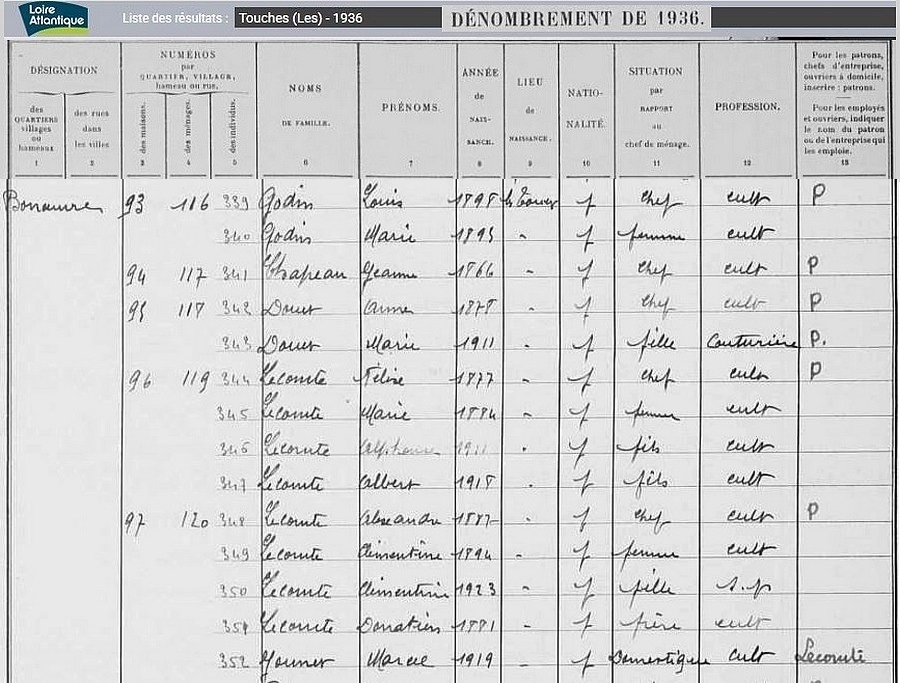 Loire Atlantique
Liste des résultats : Touches (Les) - 1936
DÉNOMBREMENT DE 1936.
DÉSIGNATION
des QUARTIERS villages ou hameaux
1
des rues dans les villes
2
NUMÉROS
par
QUARTIER, VILLAGE,
hameau ou rue.
des maisons.
3
des ménages.
4
des individus.
5
NOMS
DE FAMILLE.
6
PRÉNOMS.
7
ANNÉE
de
NAIS-
SANCE.
8
LIEU
de
NAISSANCE.
9
NATIO-
NALITÉ.
10
SITUATION
par
RAPPORT
au
chef de ménage.
11
PROFESSION.
12
Pour les patrons,
chefs d'entreprise,
ouvriers à domicile,
inscrire : patrons.
Pour les employés
et ouvriers, indiquer
le nom du patron
ou de l'entreprise qui
les emploie.
13
93 116 339 Godin Louis 1898 f chef cult P
340 Godin Marie 1895 - f femme cult
94 117 341 Chapeau Jeanne 1866 - f chef cult P
95 118 342 Douet Anne 1878 - f chef cult P
343 Douet Marie 1911 - f fille Couturière P.
96 119 344 Lecomte 1877 - f chef cult P
345 Lecomte Marie 1884 - f femme cult
346 Lecomte Alphonse 1911 f fils cult
347 Lecomte Albert 1918 f fils cult
97 120 348 Lecomte Alexandre 1887 - f chef cult P
349 Lecomte Clémentine 1894 - f femme cult
350 Lecomte Clémentine 1923 - f fille s.p
351 Lecomte Donatien 1881 - f frère cult
352 1919 - f Domestique cult Lecomte